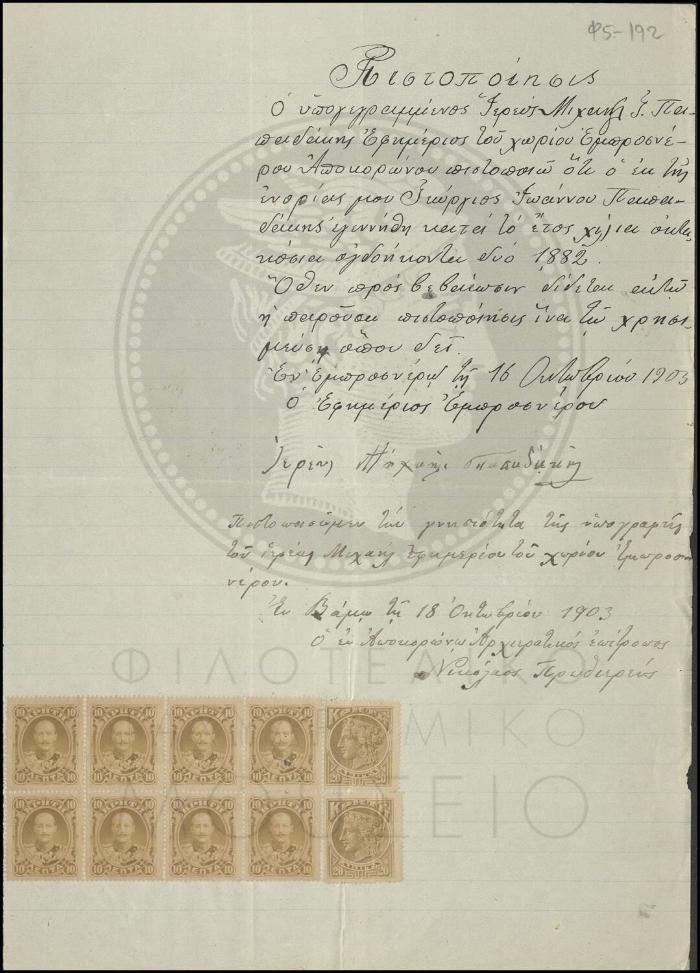 Φ5-192
Πιστοποίησις
Ὁ ὑπογεγραμμένος Ἱερεὺς Μιχαὴλ Ἰ. Πα-
παδάκης Ἐφημέριος τοῦ χωρίου Ἐμπροσνέ-
ρου Ἀποκορώνου πιστοποιῶ ὅτι ὁ ἐκ τῆς
ἐνορίας μου Γεώργιος Ἰωάννου Παπα-
δάκης ἐγεννήθη κατὰ τὸ ἔτος χίλια ὀκτα-
κόσια ὀγδοήκοντα δύο 1882.
Ὅθεν πρὸς βεβαίωσιν δίδεται αὐτῷ
ἡ παροῦσα πιστοποίησις ἵνα τῷ χρησι-
μεύσῃ ὅπου δεῖ.
Ἐν Ἐμπροσνέρῳ τῇ 16 Ὀκτωβρίου 1903
Ὁ Ἐφημέριος Ἐμπροσνέρου
Ἱερεὺς Μηχαὴλ Παπαδάκης
Πιστοποιοῦμεν τὴν γνησιότητα τῆς ὑπογραφῆς
τοῦ ἱερέως Μιχαὴλ ἐφημερίου τοῦ χωρίου Ἐμπροσ-
νέρου.
Ἐν Βάμῳ τῇ 18 Ὀκτωβρίου 1903
Ὁ ἐν Ἀποκορώνῳ Ἀρχιερατικὸς ἐπίτροπος
Νικόλαος
ΦΙΛΟΤΕΛΙΚΟ
ΜΟΥΣΕΙΟ
ΚΡΗΤΗ ΚΡΗΤΗ ΚΡΗΤΗ ΚΡΗΤΗ ΚΡΗΤΗ
10 ΛΕΠΤΑ 10 10 ΛΕΠΤΑ 10 10 ΛΕΠΤΑ 10 10 ΛΕΠΤΑ 10 20 ΛΕΠΤΑ 20
ΚΡΗΤΗ ΚΡΗΤΗ ΚΡΗΤΗ ΚΡΗΤΗ ΚΡΗΤΗ
10 ΛΕΠΤΑ 10 10 ΛΕΠΤΑ 10 10 ΛΕΠΤΑ 10 10 ΛΕΠΤΑ 10 20 ΛΕΠΤΑ 20